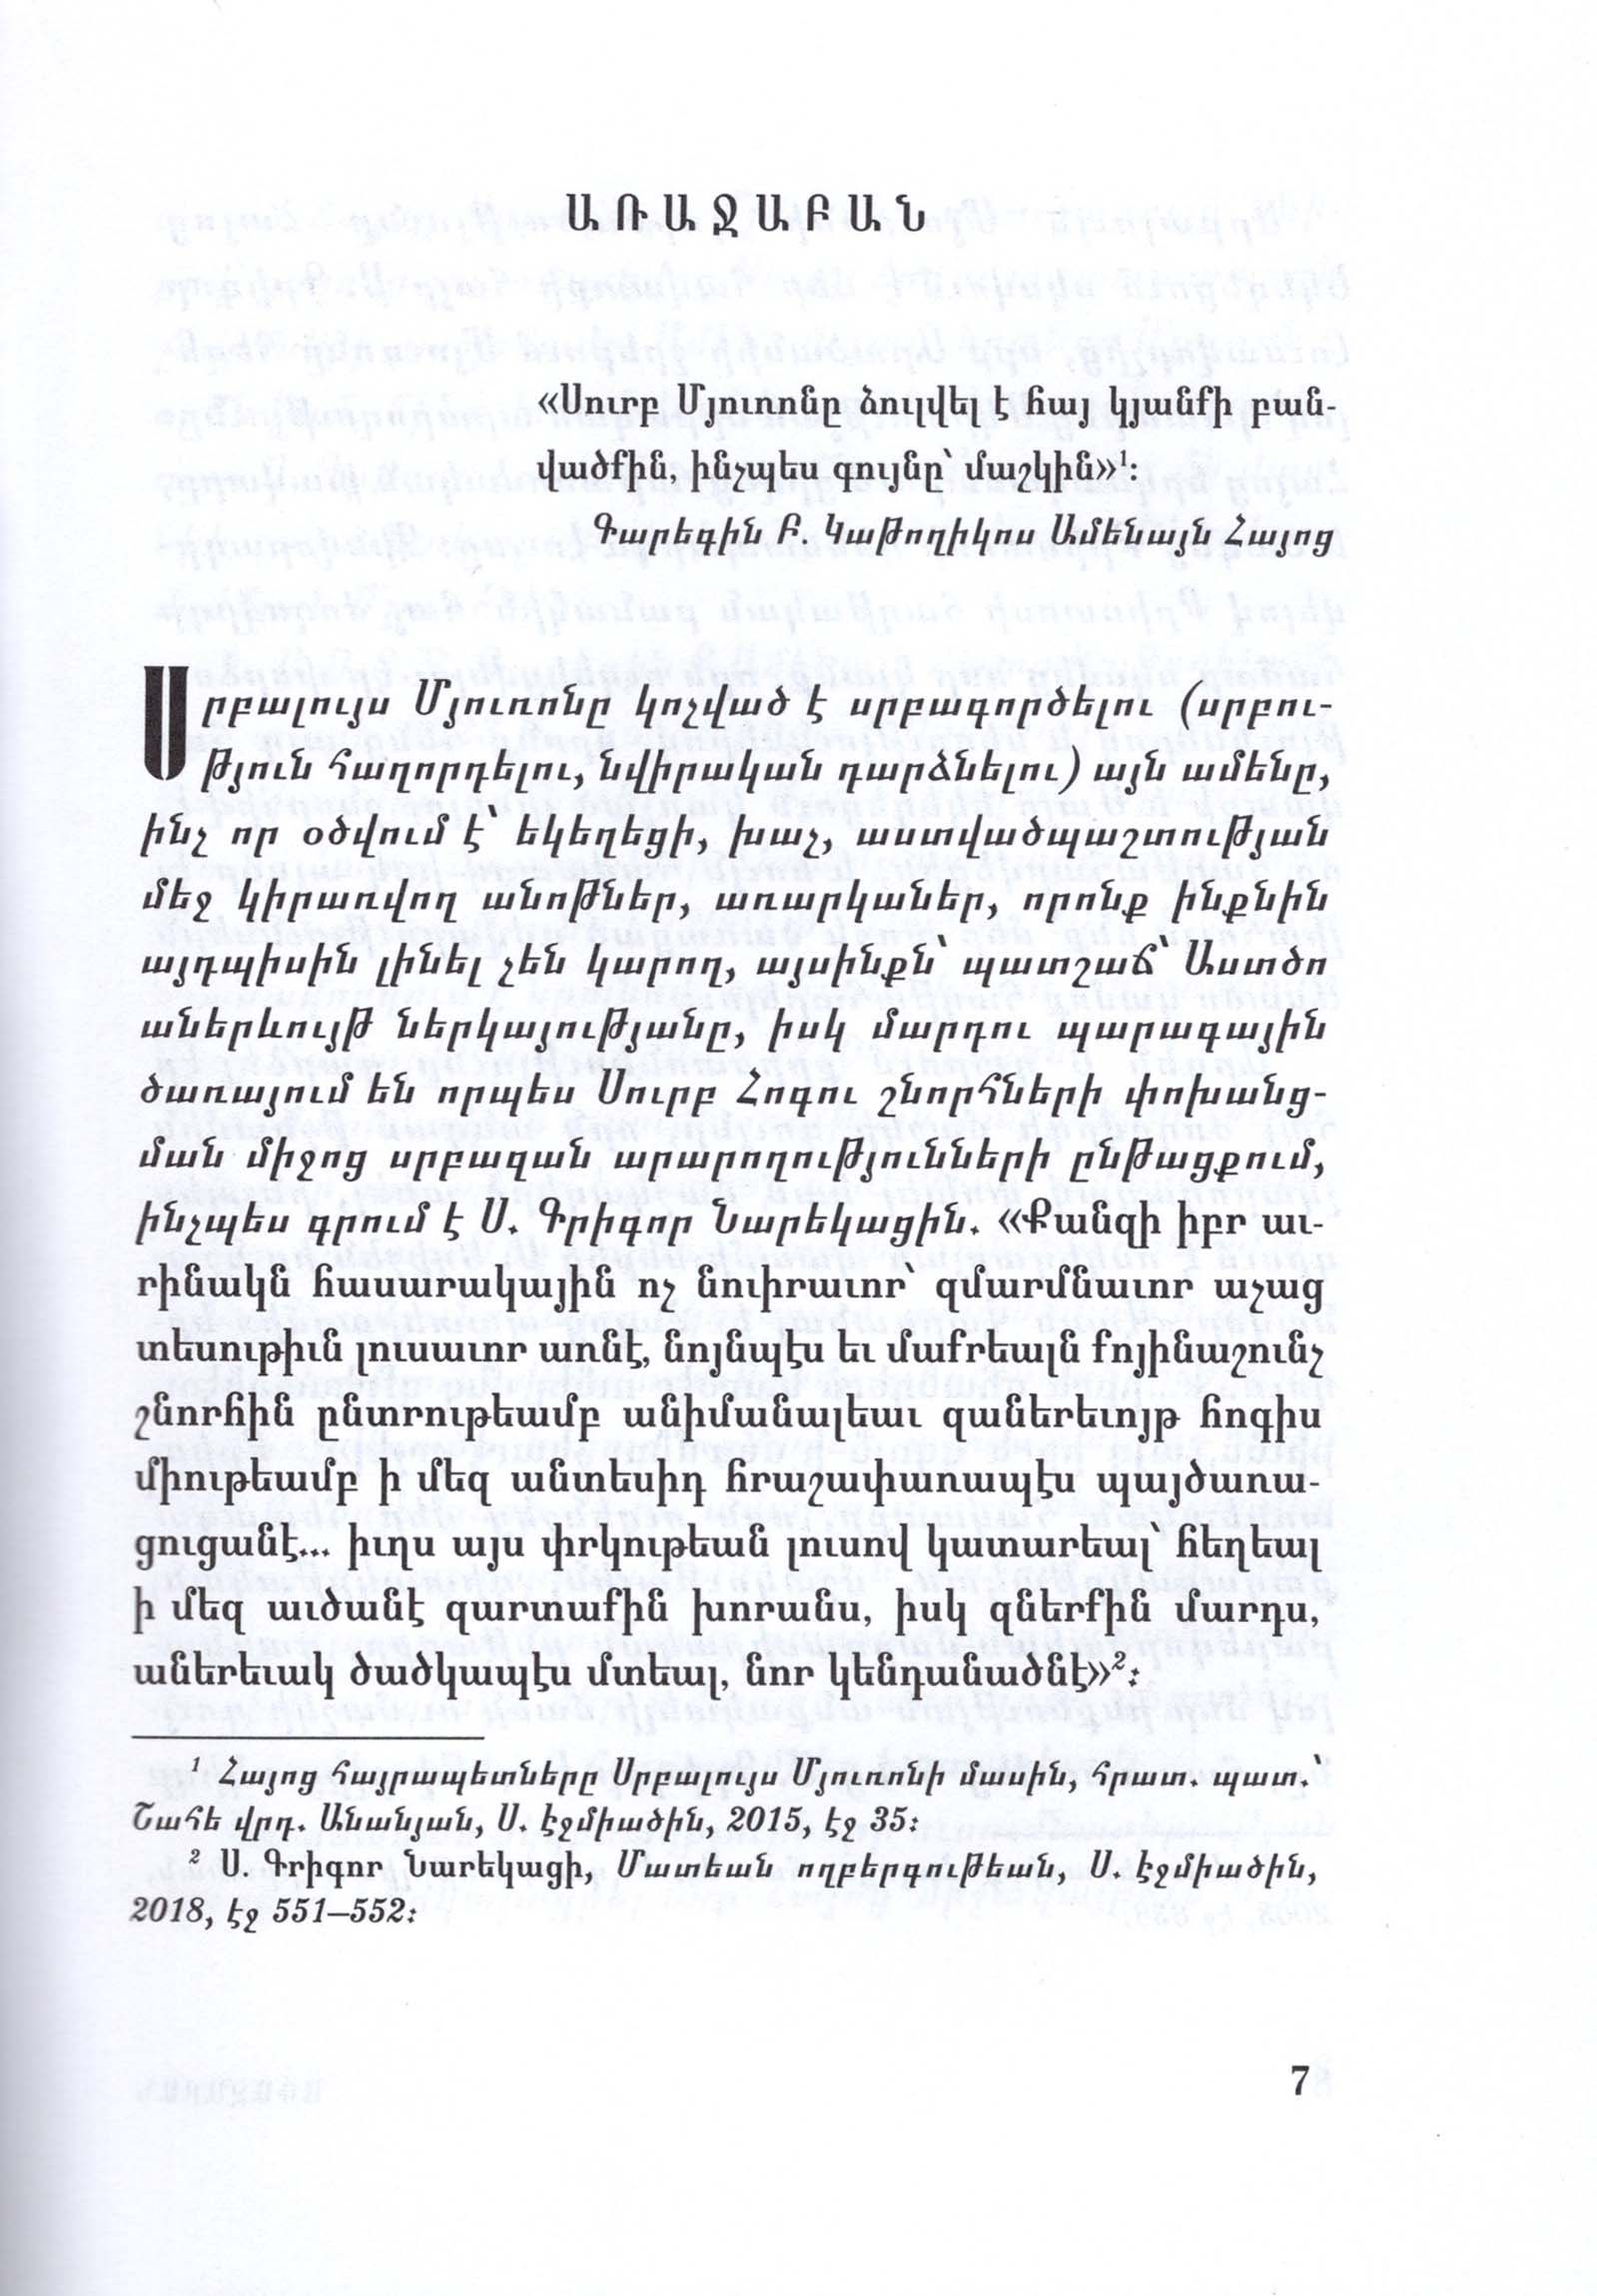 ԱՌԱՋԱԲԱՆ
«Սուրբ Մյուռոնը ձուլվել է հայ կյանքի բան-
վածքին, ինչպես գույնը՝ մաշկին»¹:
Գարեգին Բ. Կաթողիկոս Ամենայն Հայոց
Սրբալույս Մյուռոնը կոչված է սրբագործելու (սրբու-
թյուն հաղորդելու, նվիրական դարձնելու) այն ամենը,
ինչ որ օծվում է՝ եկեղեցի, խաչ, աստվածպաշտության
մեջ կիրառվող անոթներ, առարկաներ, որոնք ինքնին
այդպիսին լինել չեն կարող, այսինքն՝ պատշաճ՝ Աստծո
աներևույթ ներկայությանը, իսկ մարդու պարագային
ծառայում են որպես Սուրբ Հոգու շնորհների փոխանց-
ման միջոց սրբազան արարողությունների ընթացքում,
ինչպես գրում է Ս. Գրիգոր Նարեկացին. «Քանզի իբր աւ-
րինակն հասարակային ոչ նուիրաւոր՝ զմարմնաւոր աչաց
տեսութիւն լուսաւոր առնէ, նոյնպէս եւ մաքրեալն քոյինաշունչ
շնորհին ընտրութեամբ անիմանալեաւ զաներեւոյթ հոգիս
միութեամբ ի մեզ անտեսիդ հրաշափառապէս պայծառա-
ցուցանէ... իւղս այս փրկութեան լուսով կատարեալ՝ հեղեալ
ի մեզ աւծանէ զարտաքին խորանս, իսկ զներքին մարդս,
աներեւակ ծածկապէս մտեալ, նոր կենդանածնէ»²:
¹ Հայոց հայրապետները Սրբալույս Մյուռոնի մասին, հրատ. պատ.՝
Շահե վրդ. Անանյան, Ս. Էջմիածին, 2015, էջ 35:
² Ս. Գրիգոր Նարեկացի, Մատեան ողբերգութեան, Ս. Էջմիածին,
2018, էջ 551–552:
7